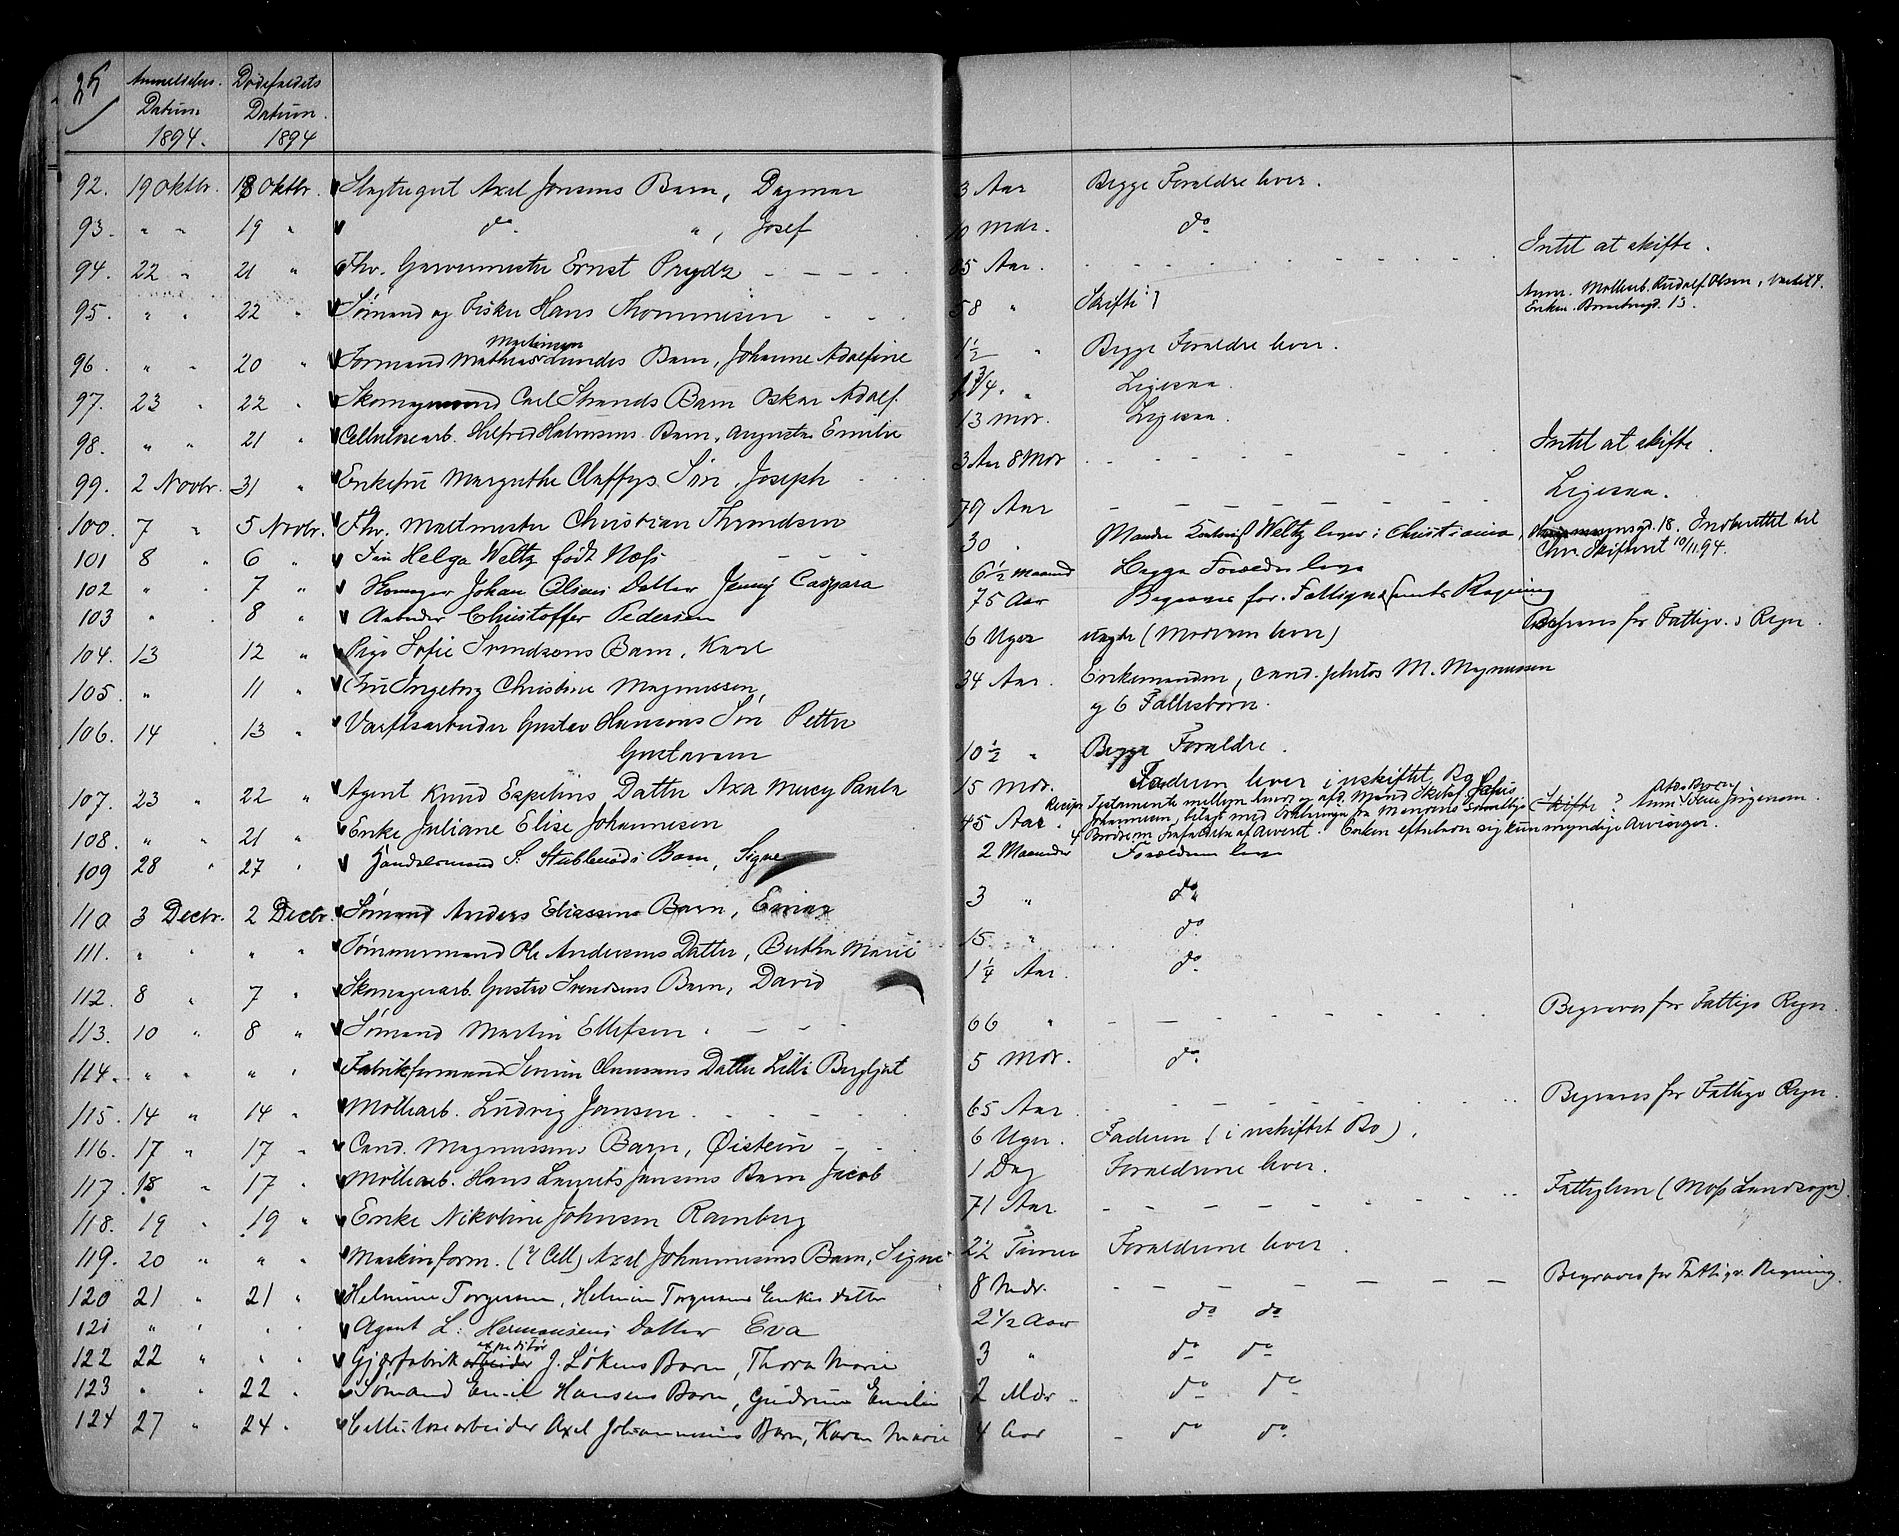 25
Anmeldelses. Datum. 1894.
Dødsfaldets Datum. 1894
92. 19 Oktbr. 18 Oktbr. Slagtergut Axel Jensens Barn, Dagmar 3 Aar Begge Foreldre lever.
93. " " 19 " do " , Josef 10 Mdr. do
94. 22 " 21 " Fhv. Garvermester Ernst Prydz - - - - 85 Aar. Intet at skifte.
95. " " 22 " Sømand og Fisker Hans Thommesen - - - 58 " Skifte? Anm. Møllearb. Rudolf Olsen, Enken.
96. " " 20 " Formand Mathias Martinsen Lundes Barn, Johanne Adolfine 1 1/2 " Begge Foreldre lever.
97. 23 " 22 " Carl Strands Barn Oskar Adolf. 1 3/4 " Ligesaa.
98. " " 21 " Cellulosearb. Hilfred Halvorsens Barn, Augusta Emilie 13 Mdr. Ligesaa.
99. 2 Novbr. 31 " Enkefru Margrethe Claffys Søn, Joseph - - 3 Aar 8 Mdr - - - - - Intet at skifte.
100. 7 " 5 Novbr. Fhv. Maltmester Christian Throndsen 79 Aar - - - - - Ligesaa.
101 8 " 6 " Fru Helga Weltz født Næss - - - 30 " Manden Weltz lever i Christiania, 18. Indberettet til Chr. Skifteret 10/11 94.
102 " " 7 " Skomager Johan Olsens Datter Jenny Caspara 6 1/2 Maaned Begge Forældre leve
103 " " 8 " Arbeider Christoffer Pedersen 75 Aar Begraves for Fattigvæsenets Regning
104. 13 12 " Pige Sofie Svendsens Barn, Karl 6 Uger uægte (Moderen lever) Begraves for Fattigv.s Regn.
105. " 11 " Fru Ingeborg Christine Magnussen, 34 Aar. Enkemanden, cand. philos M. Magnussen
og 6 Fællesbørn.
106. 14 . 13 " Værftsarbeider Gustav Hansens Søn Petter
Gustavsen 10 1/2 " Begge Foreldre.
107. 23 " 22 " Agent Knud Espelins Datter Axa Mercy Paula 15 Mdr. Faderen lever i uskiftet Bo
108. " " 21 " Enke Juliane Elise Johannesen 45 Aar. Testamente mellem hende og afd. Mand Johannesen, Skifte? Enken efterlever sig kun myndige Arvinger.
109 28 " 27 " Handelsmand S. Stubberuds Barn, Signe 2 Maaneder Forældrene leve
110 3 Decbr. 2 Decbr. Sømand Anders Eliassens Barn, Einar 3 " do
111. " " " " Tømmermand Ole Andersens Datter, Berthe Marie 15 " do
112. 8 " 7 " Skomagerarb. Gustav Svendsens Barn, David 1 1/4 Aar. do
113. 10 " 8 " Sømand Martin Ellefsen . - - - 66 " - - - - Begraves for Fattigv. Regn.
114. " " " " Fabrikformand Severin Clausens Datter Lilli Bergljot 5 Mdr. do
115. 14 " 14 " Møllearb. Ludvig Jansen. - - - 65 Aar . - - - - Begraves for Fattigv. Regn.
116. 17 " 17 " Cand. Magnussens Barn, Øistein - - 6 Uger. Faderen (i uskiftet Bo).
117. 18 " 17 " Møllearb. Hans Laurits Jansens Barn Jacob 1 Dag Foreldrene lever.
118. 19 " 19 " Enke Nikoline Johnsen Ramberg 71 Aar - - - - - Fattiglem (Moss Landsogn).
119. 20 " " " Maskinform. (v/ Cell) Axel Johannesens Barn, Signe 22 Timer Foreldrene lever.
120 21 " 21 " Helmine Torgersen, Helmin Torgersens Enkes datter 8 Mdr. - - - - - Begraves for Fattigv. Regning.
121 " " " " Agent L. Hermansens Datter Eva 2 1/2 Aar do do
122 22 " " " Gjærfabrik arbeider expeditør J. Løkens Barn, Thora Marie 3 " do do
123 " " 22 " Sømand Emil Hansens Barn, Gudrun Emilie 2 Mdr " do do
124 27 " 24 " Cellulosearbeider Axel Johannesens Barn, Karen Marie 4 Aar - do do